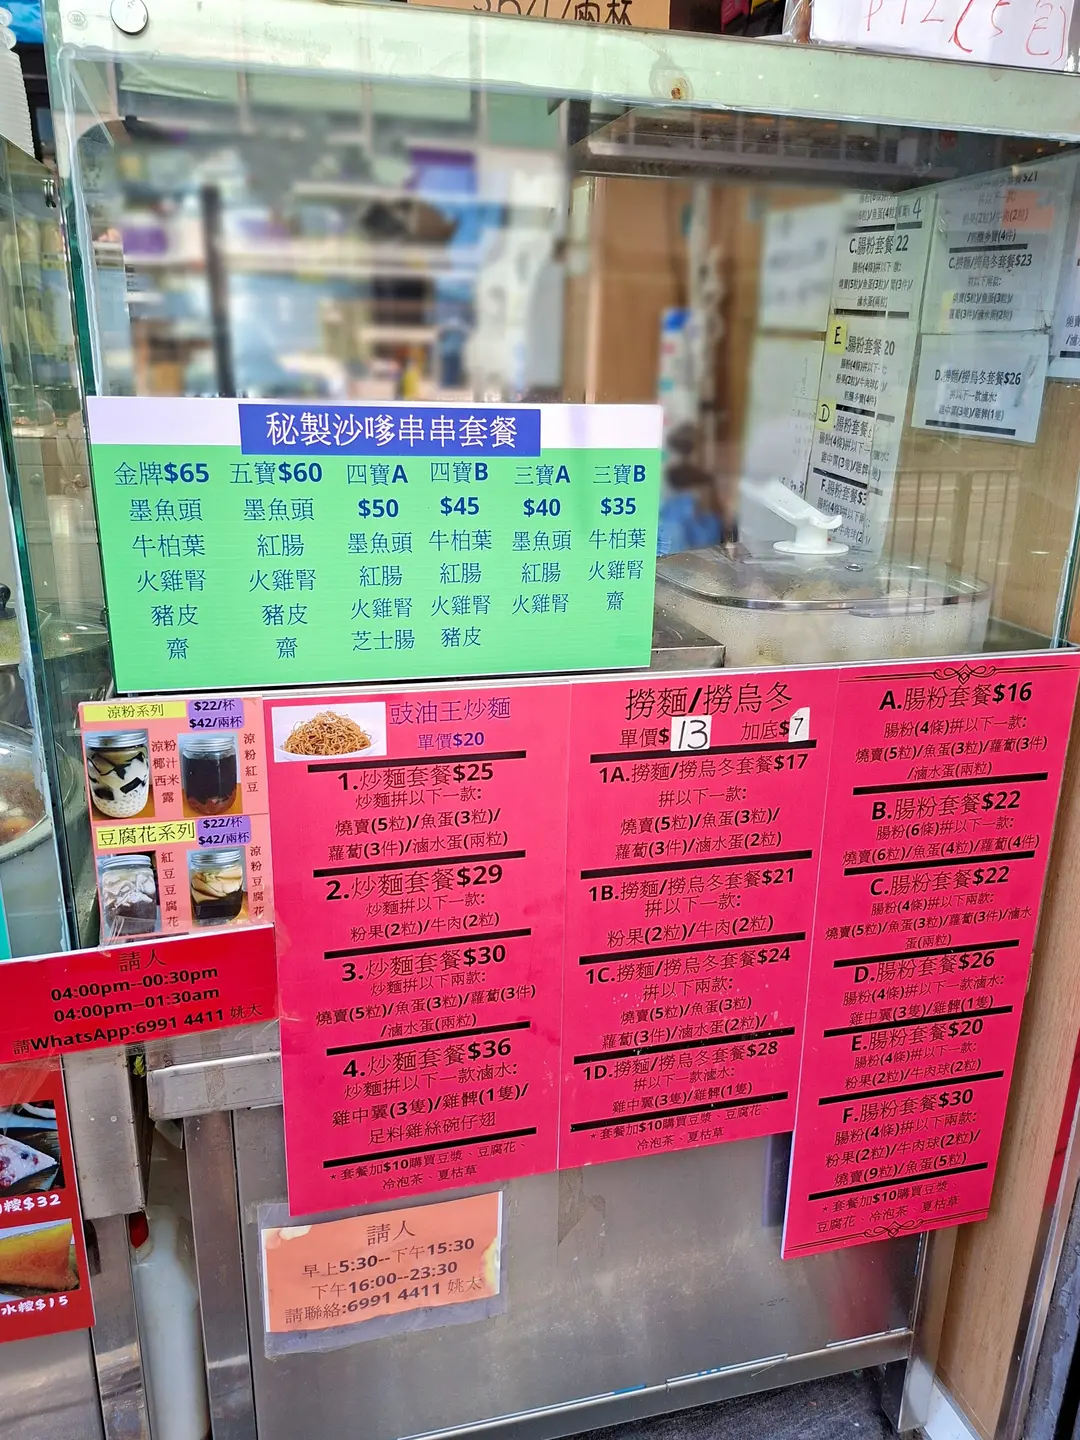 秘製沙嗲串串套餐
金牌$65
墨魚頭
牛柏葉
火雞腎
豬皮
齋
五寶$60
墨魚頭
紅腸
火雞腎
豬皮
齋
四寶A
$50
墨魚頭
紅腸
火雞腎
芝士腸
四寶B
$45
牛柏葉
紅腸
火雞腎
豬皮
三寶A
$40
墨魚頭
紅腸
火雞腎
三寶B
$35
牛柏葉
火雞腎
齋
C.腸粉套餐 22
腸粉套餐 20
C.撈麵/撈烏冬套餐$23
D.撈麵/撈烏冬套餐$26
拼以下一款滷水:
雞中翼(3隻)/雞髀(1隻)
涼粉系列
$22/杯
$42/兩杯
涼粉椰汁西米露
涼粉紅豆
豆腐花系列
$22/杯
$42/兩杯
紅豆豆腐花
涼粉豆腐花
請人
04:00pm--00:30pm
04:00pm--01:30am
請WhatsApp:6991 4411 姚太
豉油王炒麵
單價$20
1.炒麵套餐$25
炒麵拼以下一款:
燒賣(5粒)/魚蛋(3粒)/
蘿蔔(3件)/滷水蛋(兩粒)
2.炒麵套餐$29
炒麵拼以下一款:
粉果(2粒)/牛肉(2粒)
3.炒麵套餐$30
炒麵拼以下兩款:
燒賣(5粒)/魚蛋(3粒)/蘿蔔(3件)
/滷水蛋(兩粒)
4.炒麵套餐$36
炒麵拼以下一款滷水:
雞中翼(3隻)/雞髀(1隻)/
足料雞絲碗仔翅
*套餐加$10購買豆漿、豆腐花、
冷泡茶、夏枯草
撈麵/撈烏冬
單價$13 加底$7
1A.撈麵/撈烏冬套餐$17
拼以下一款:
燒賣(5粒)/魚蛋(3粒)/
蘿蔔(3件)/滷水蛋(2粒)
1B.撈麵/撈烏冬套餐$21
拼以下一款:
粉果(2粒)/牛肉(2粒)
1C.撈麵/撈烏冬套餐$24
拼以下兩款:
燒賣(5粒)/魚蛋(3粒)
蘿蔔(3件)/滷水蛋(2粒)/
1D.撈麵/撈烏冬套餐$28
拼以下一款滷水:
雞中翼(3隻)/雞髀(1隻)
*套餐加$10購買豆漿、豆腐花、
冷泡茶、夏枯草
A.腸粉套餐$16
腸粉(4條)拼以下一款:
燒賣(5粒)/魚蛋(3粒)/蘿蔔(3件)
/滷水蛋(兩粒)
B.腸粉套餐$22
腸粉(6條)拼以下一款:
燒賣(6粒)/魚蛋(4粒)/蘿蔔(4件)
C.腸粉套餐$22
腸粉(4條)拼以下兩款:
燒賣(5粒)/魚蛋(3粒)/蘿蔔(3件)/滷水
蛋(兩粒)
D.腸粉套餐$26
腸粉(4條)拼以下一款滷水:
雞中翼(3隻)/雞髀(1隻)
E.腸粉套餐$20
腸粉(4條)拼以下一款:
粉果(2粒)/牛肉球(2粒)
F.腸粉套餐$30
腸粉(4條)拼以下兩款:
粉果(2粒)/牛肉球(2粒)/
燒賣(9粒)/魚蛋(5粒)
*套餐加$10購買豆漿、
豆腐花、冷泡茶、夏枯草
糉$32
水糉$15
請人
早上5:30--下午15:30
下午16:00--23:30
請聯絡:6991 4411 姚太